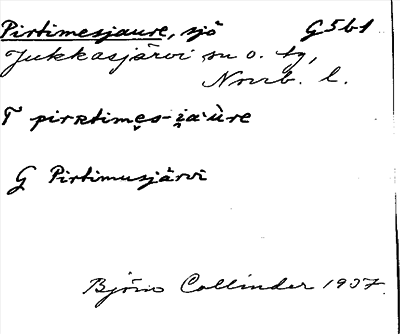 Pirtimesjaure, sjö G5b1
Jukkasjärvi sn o. tg,
Norrb. l.
T pirʀtimes-i̯a·ùre
G Pirtimusjärvi
Björn Collinder 1937